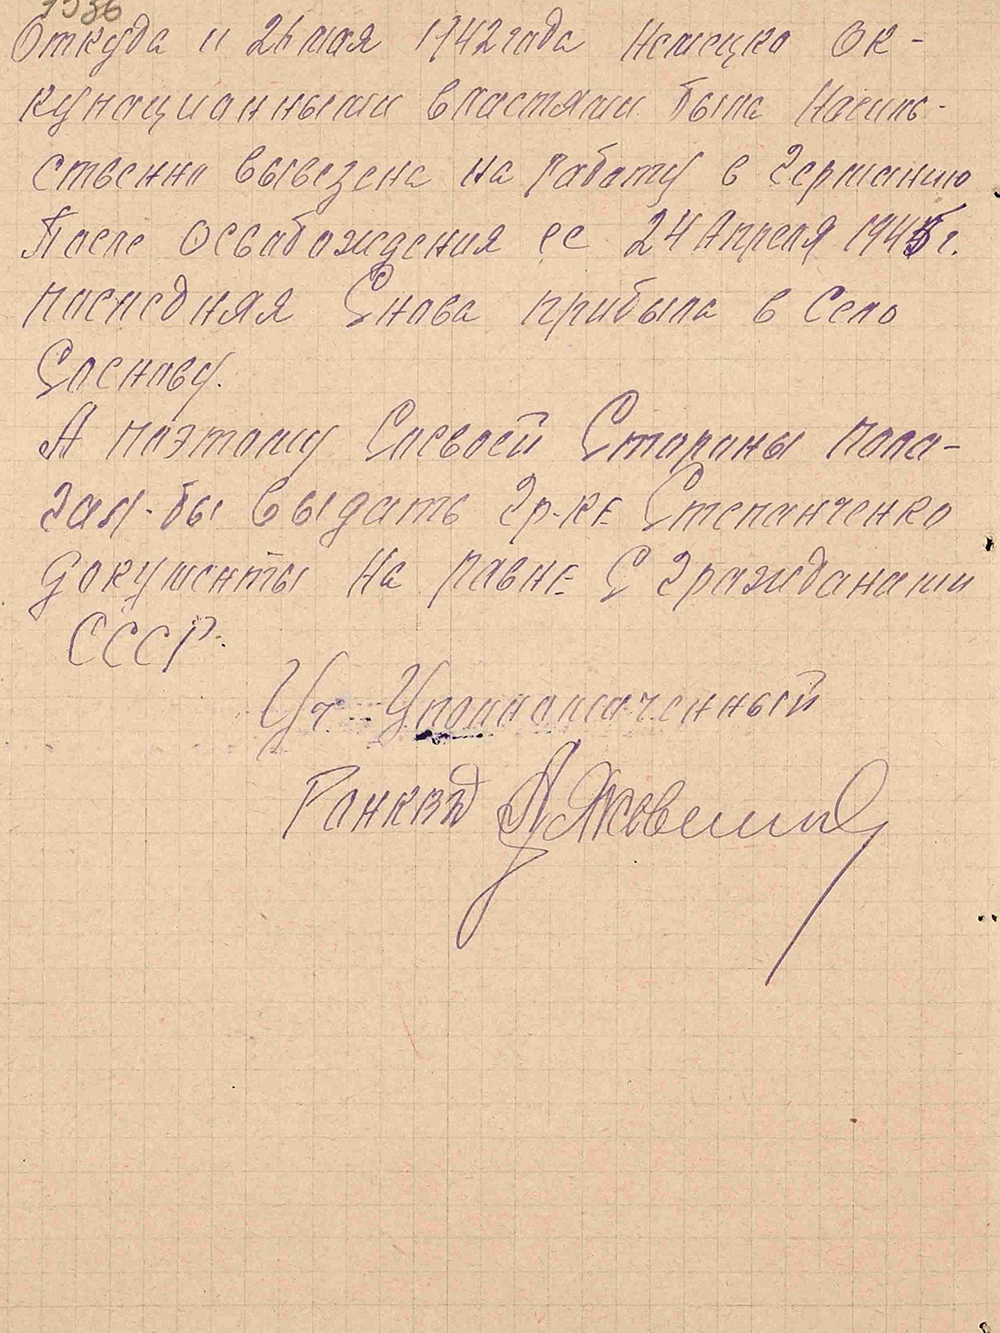 1936
Откуда и 26 мая 1942 года Немецко Ок-
купационными властями была Насиль-
ственно вывезена на работу в Германию
После Освабождения ее 24 Апреля 1945 г.
последняя Снова прибыла в Село
Соснову.
А поэтому Сосвоей Стораны пола-
гал-бы выдать гр-ке Степанченко
документы На равне С гражданами
СССР.
Уч- Уполномаченный
Ранквд